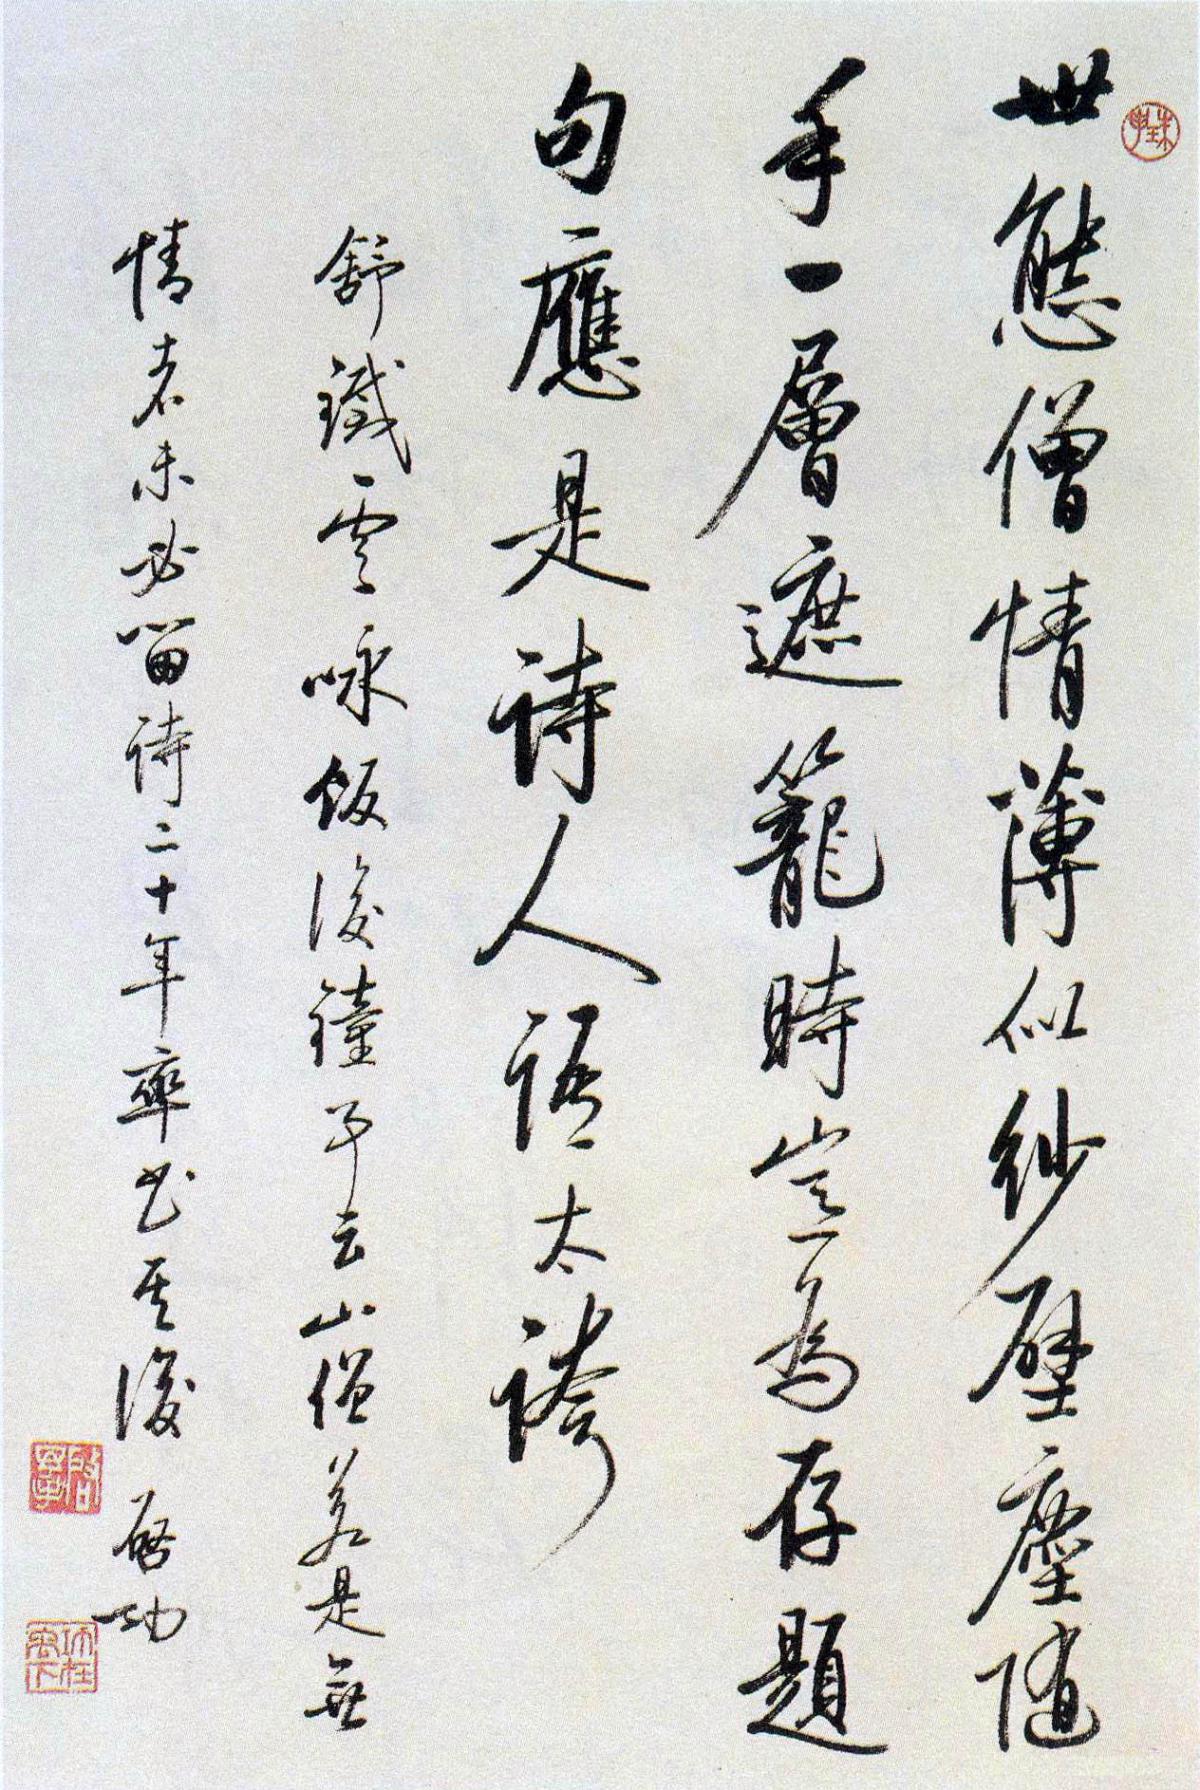 世態僧情薄似紗壁塵隨
手一層遮籠時豈為存題
句應是詩人語太誇
舒鐵雲咏飯後鐘事云山僧若是無
情者未必留詩二十年率書其後 啟功